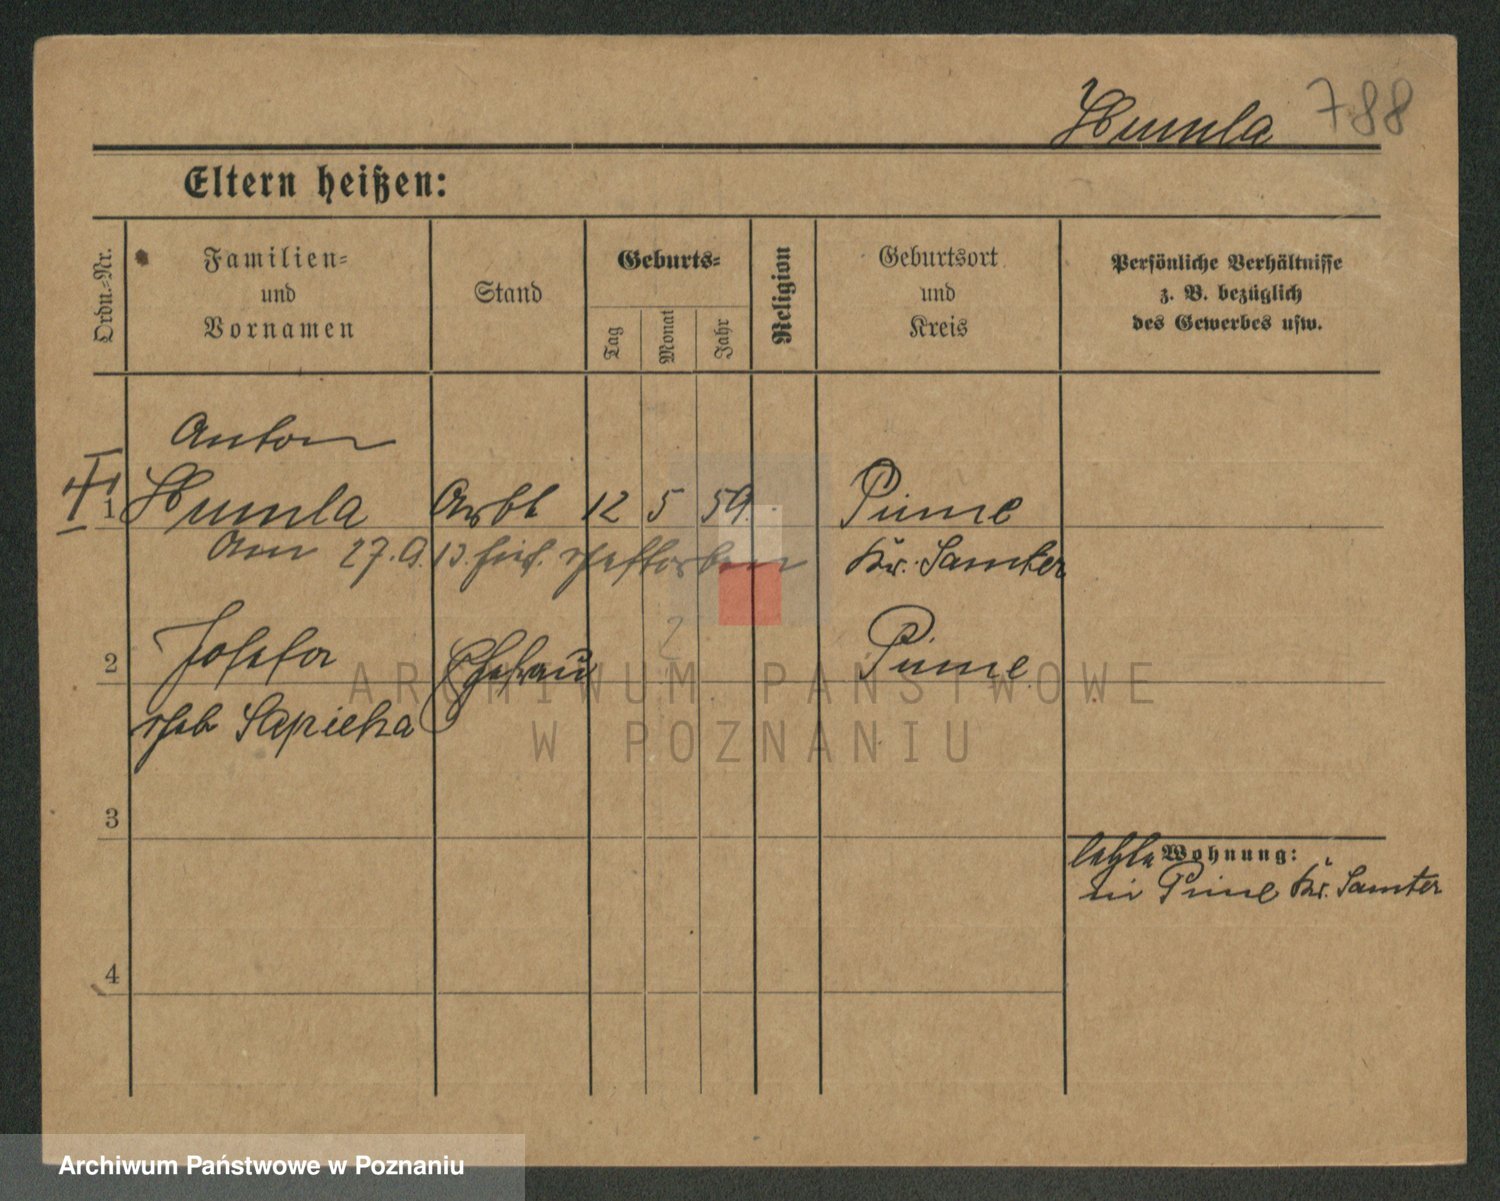 Humla 788
Eltern heißen:
Ordn.-Nr.
Familien-
und
Vornamen
Stand
Geburts-
Tag
Monat
Jahr
Religion
Geburtsort
und
Kreis
Persönliche Verhältnisse
z. B. bezüglich
des Gewerbes usw.
Anton
1 Humla Arbt 12 5 59. Pinne
am 27.9.13. hier gestorben Kr. Samter
2 Josefa Ehefrau Pinne
geb Sapieha
3
letzte Wohnung:
in Pinne Kr. Samter
4
ARCHIWUM PAŃSTWOWE
W POZNANIU
Archiwum Państwowe w Poznaniu